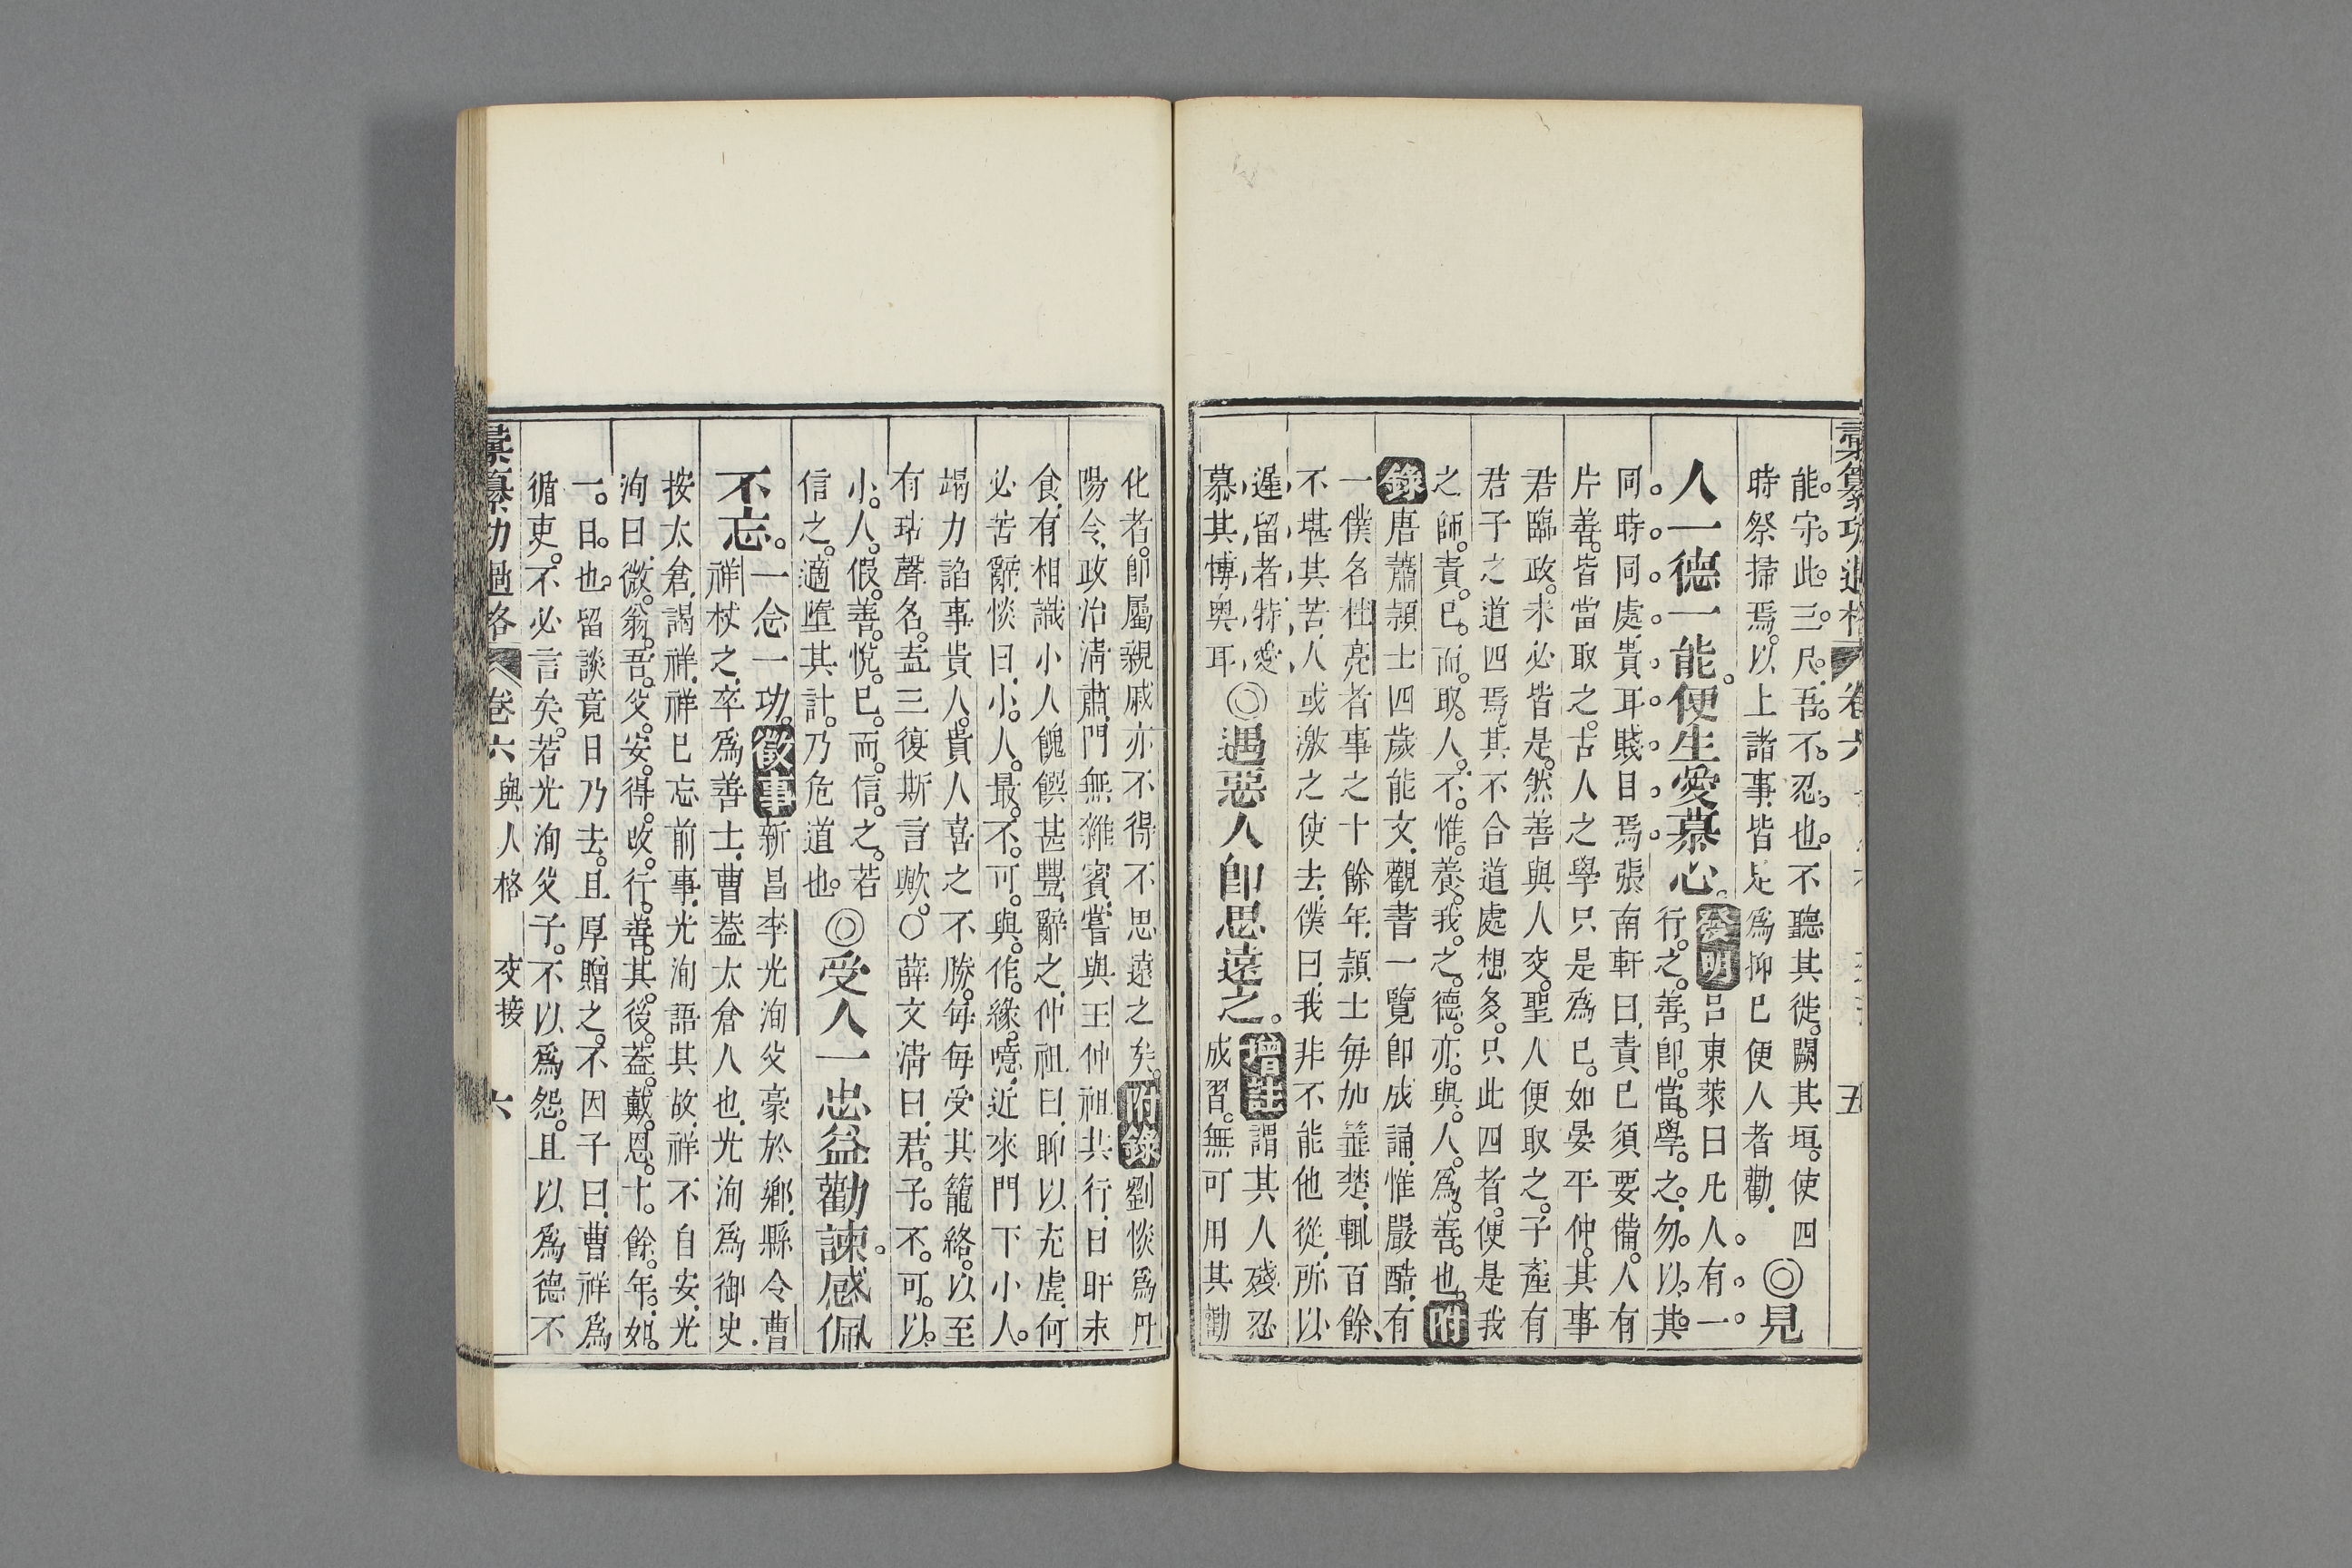 彙纂功過格 卷六 五
能守此三尺吾不忍也不聽其徙闕其垣使四
時祭掃焉以上諸事皆是爲抑已便人者勸 ◎見
人一德一能便生愛慕心 發明 呂東萊曰凡人有一
行之善卽當學之勿以其
同時同處貴耳賤目焉張南軒曰責已須要備人有
片善皆當取之古人之學只是爲已如晏平仲其事
君臨政未必皆是然善與人交聖人便取之子產有
君子之道四焉其不合道處想多只此四者便是我
之師責已而取人不惟養我之德亦與人爲善也 附
錄 唐蕭頴士四歲能文觀書一覽卽成誦惟嚴酷有
一僕名杜亮者事之十餘年頴士每加箠楚輒百餘
不堪其苦人或激之使去僕曰我非不能他從所以
遲留者特愛
慕其博奧耳 ◎遇惡人卽思遠之 增註 謂其人殘忍
成習無可用其勸
化者卽屬親戚亦不得不思遠之矣 附錄 劉惔爲丹
陽令政治淸肅門無雜賓嘗與王仲祖共行日旰未
食有相識小人餽饌甚豐辭之仲祖曰聊以充虛何
必苦辭惔曰小人最不可與作緣噫近來門下小人
竭力諂事貴人貴人喜之不勝每每受其籠絡以至
有玷聲名盍三復斯言歟○薛文淸曰君子不可以
小人假善悅已而信之若
信之適墮其計乃危道也 ◎受人一忠益勸諫感佩
不忘 一念一功 徵事 新昌李光洵父豪於鄉縣令曹
祥杖之卒爲善士曹蓋太倉人也光洵爲御史
按太倉謁祥祥已忘前事光洵語其故祥不自安光
洵曰微翁吾父安得改行善其後蓋戴恩十餘年如
一日也留談竟日乃去且厚贈之不因子曰曹祥爲
循吏不必言矣若光洵父子不以爲怨且以爲德不
彙纂功過格 卷六 與人格 交接 六